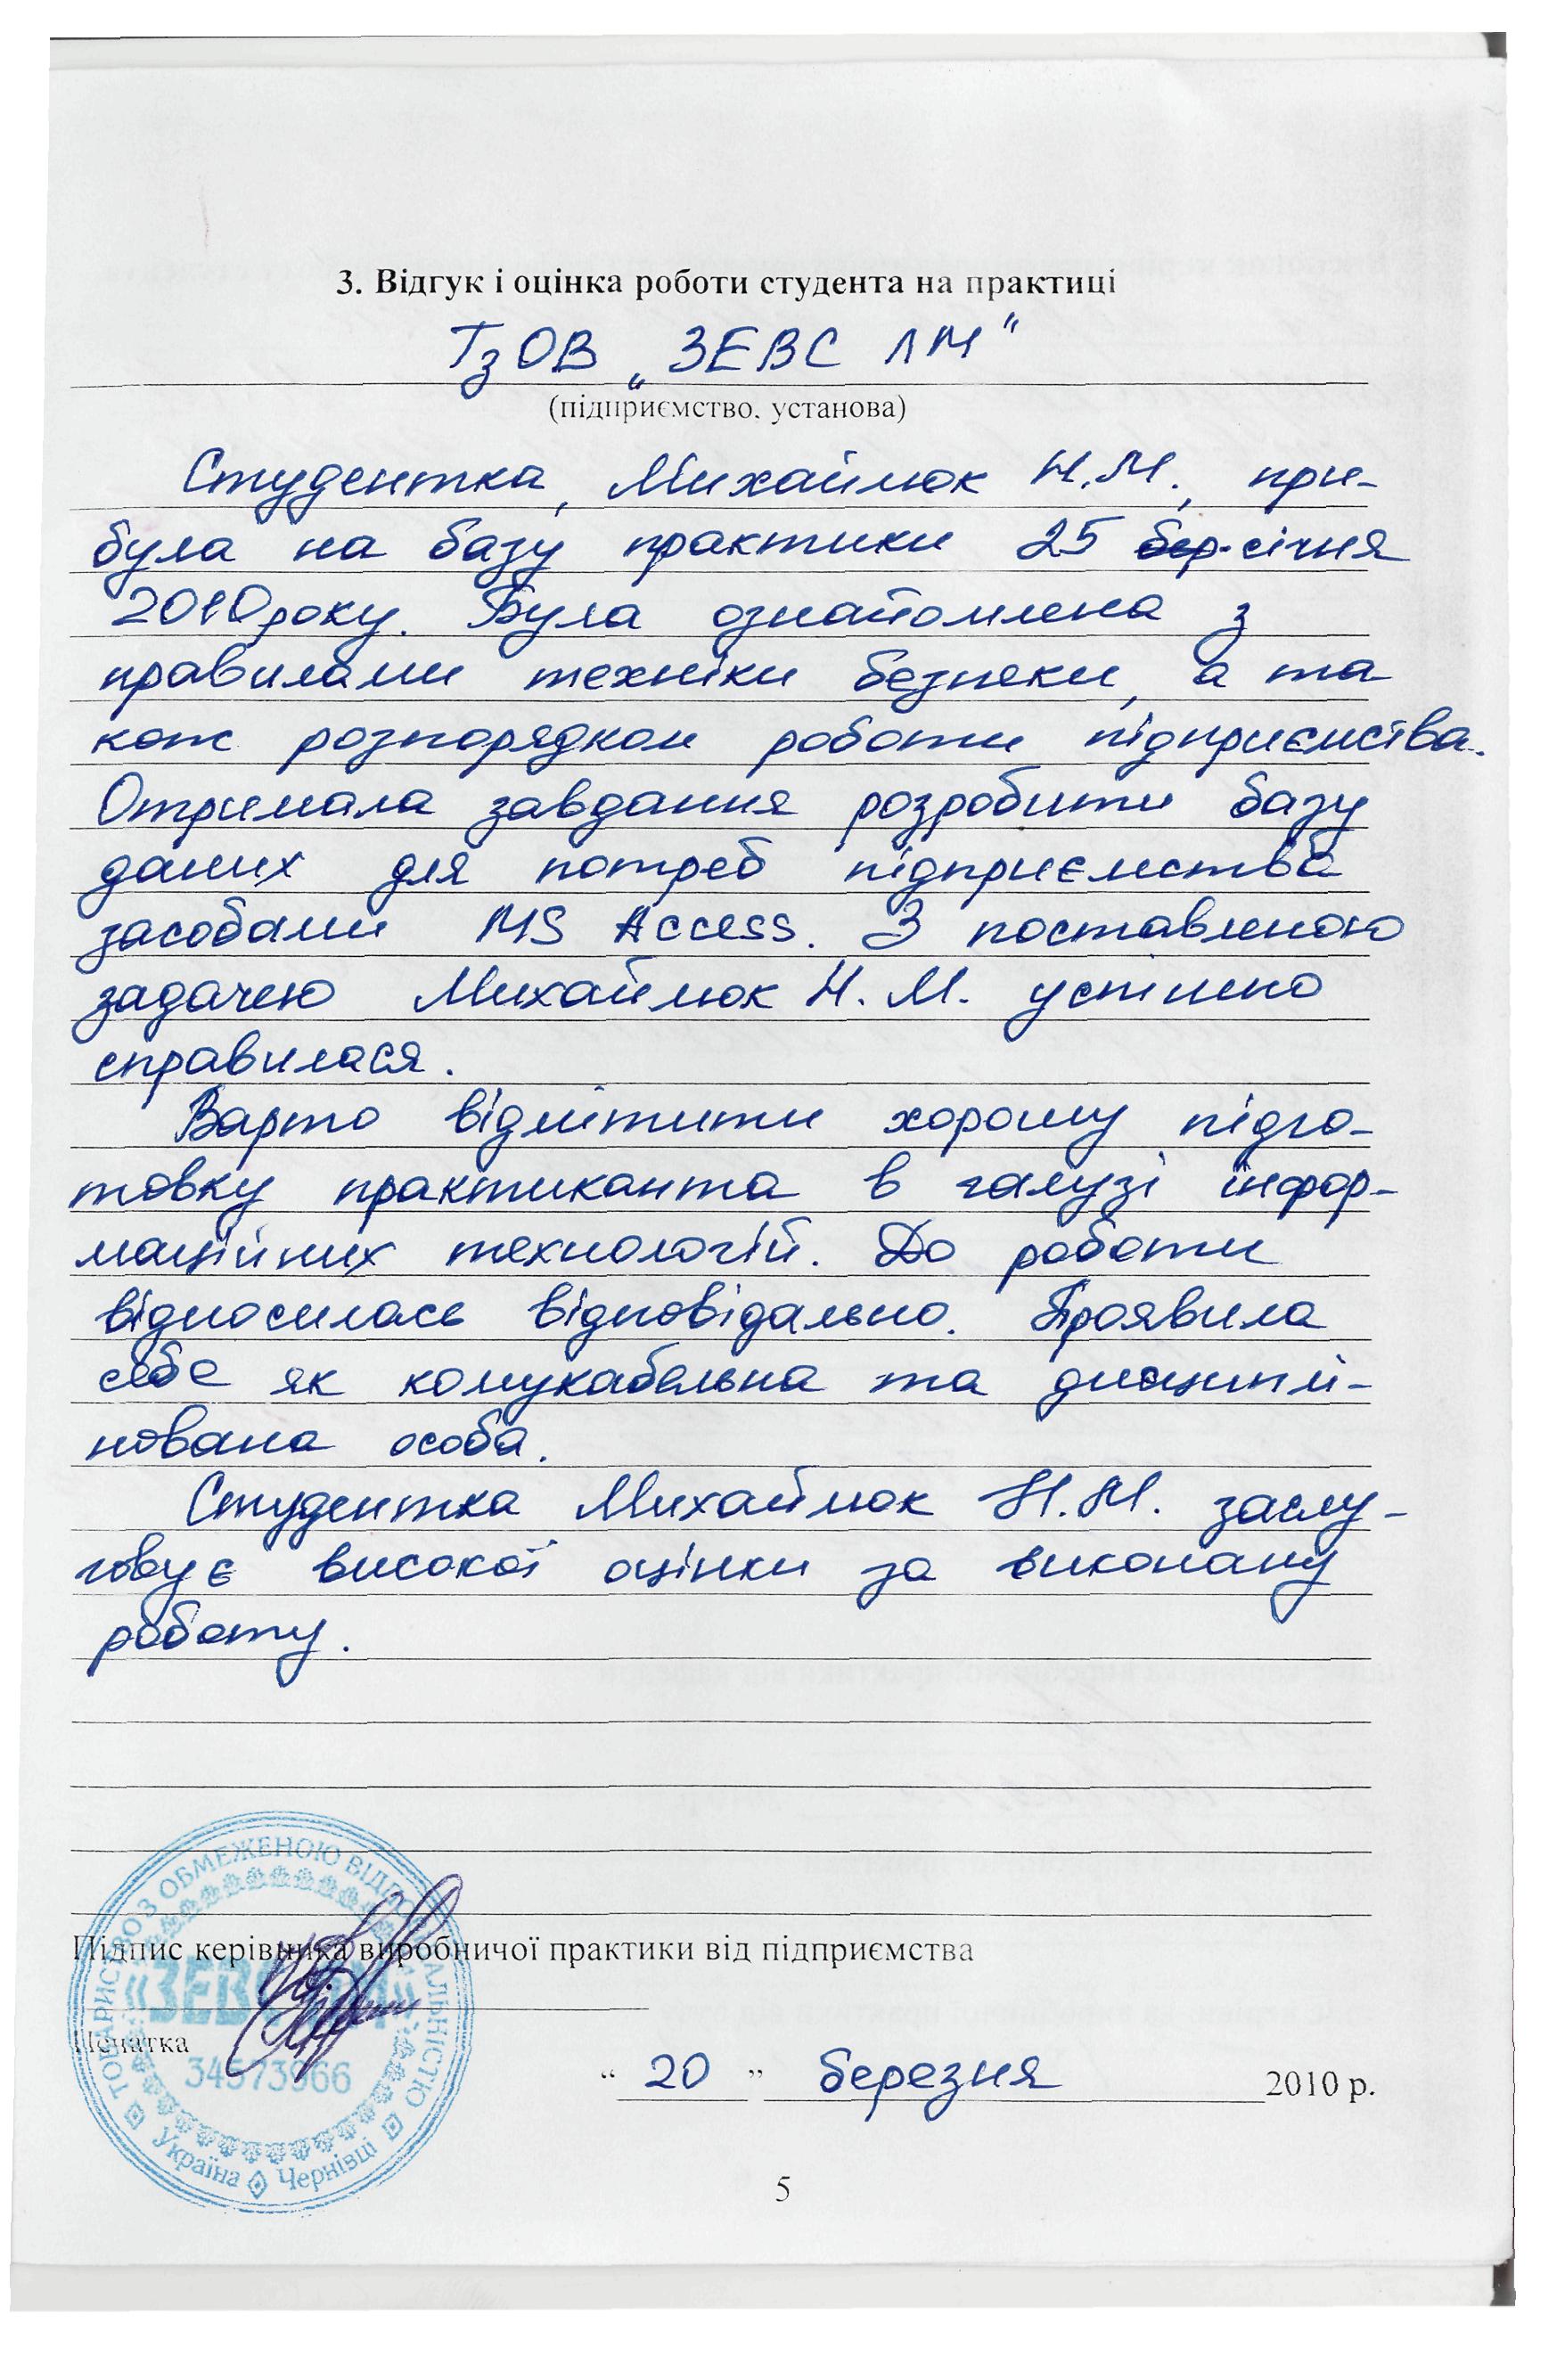 3. Відгук і оцінка роботи студента на практиці
ТзОВ „ЗЕВС ЛМ"
(підприємство, установа)
Студентка, Михайлюк Н.М., при-
була на базу практики 25 бер. січня
2010 року. Була ознайомлена з
правилами техніки безпеки, а та
кож розпорядком роботи підприємства.
Отримала завдання розробити базу
даних для потреб підприємства
засобами MS Access. З поставленою
задачею Михайлюк Н. М. успішно
справилася.
Варто відмітити хорошу підго-
товку практиканта в галузі інфор-
маційних технологій. До роботи
відносилась відповідально. Проявила
себе як комукабельна та дисциплі-
нована особа.
Студентка Михайлюк Н.М. заслу-
говує високої оцінки за виконану
роботу.
Підпис керівника виробничої практики від підприємства
Печатка
“ 20 ” березня 2010 р.
ТОВАРИСТВО З ОБМЕЖЕНОЮ ВІДПОВІДАЛЬНІСТЮ
«ЗЕВС ЛМ»
34573966
Україна Чернівці
5